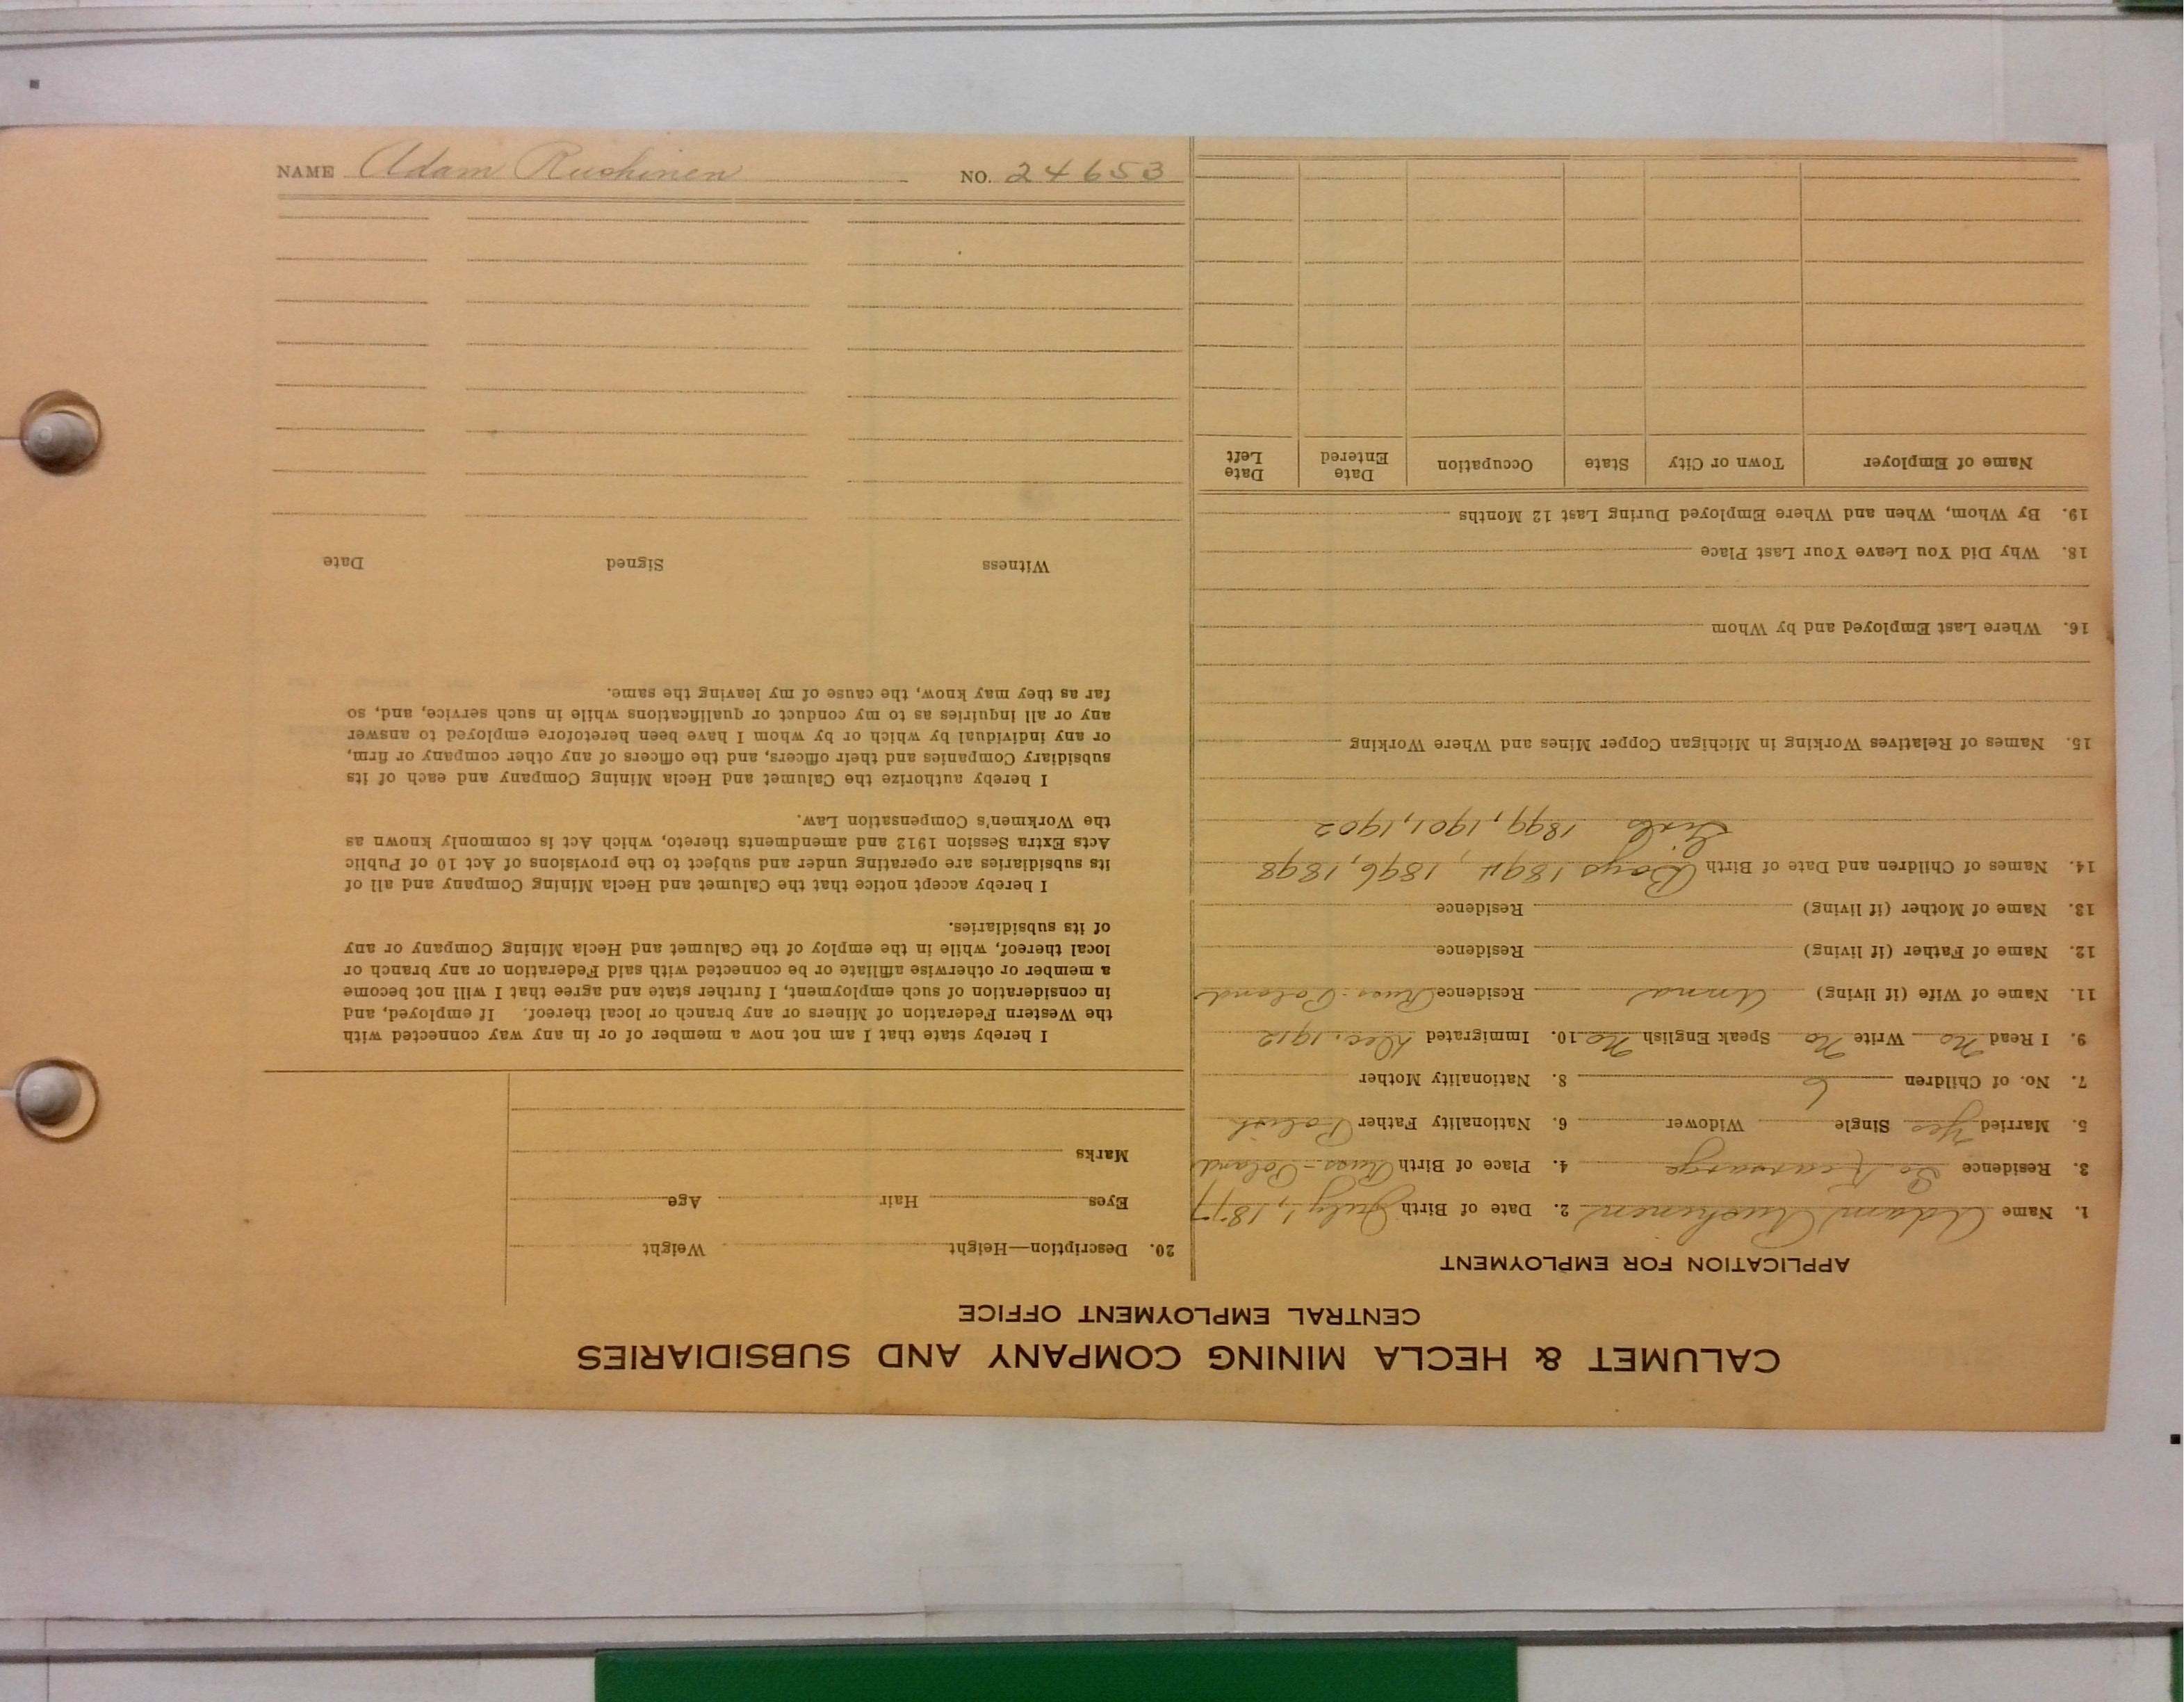 CALUMET & HECLA MINING COMPANY AND SUBSIDIARIES
CENTRAL EMPLOYMENT OFFICE
APPLICATION FOR EMPLOYMENT
1. Name Adam Ruchinen 2. Date of Birth July 1, 1877
3. Residence So. Kearsarge 4. Place of Birth Russ-Poland
5. Married Yes Single Widower 6. Nationality Father Polish
7. No. of Children 6 8. Nationality Mother
9. I Read No Write No Speak English No 10. Immigrated Dec. 1912
11. Name of Wife (if living) Anna Residence Russ-Poland
12. Name of Father (if living) Residence
13. Name of Mother (if living) Residence
14. Names of Children and Date of Birth Boys 1894, 1896, 1898
Girls 1899, 1901, 1902
15. Names of Relatives Working in Michigan Copper Mines and Where Working
16. Where Last Employed and by Whom
18. Why Did You Leave Your Last Place
19. By Whom, When and Where Employed During Last 12 Months
Name of Employer Town or City State Occupation Date Entered Date Left
20. Description—Height Weight
Eyes Hair Age
Marks
I hereby state that I am not now a member of or in any way connected with
the Western Federation of Miners or any branch or local thereof. If employed, and
in consideration of such employment, I further state and agree that I will not become
a member or otherwise affiliate or be connected with said Federation or any branch or
local thereof, while in the employ of the Calumet and Hecla Mining Company or any
of its subsidiaries.
I hereby accept notice that the Calumet and Hecla Mining Company and all of
its subsidiaries are operating under and subject to the provisions of Act 10 of Public
Acts Extra Session 1912 and amendments thereto, which Act is commonly known as
the Workmen's Compensation Law.
I hereby authorize the Calumet and Hecla Mining Company and each of its
subsidiary Companies and their officers, and the officers of any other company or firm,
or any individual by which or by whom I have been heretofore employed to answer
any or all inquiries as to my conduct or qualifications while in such service, and, so
far as they may know, the cause of my leaving the same.
Witness Signed Date
NAME Adam Ruchinen NO. 24653